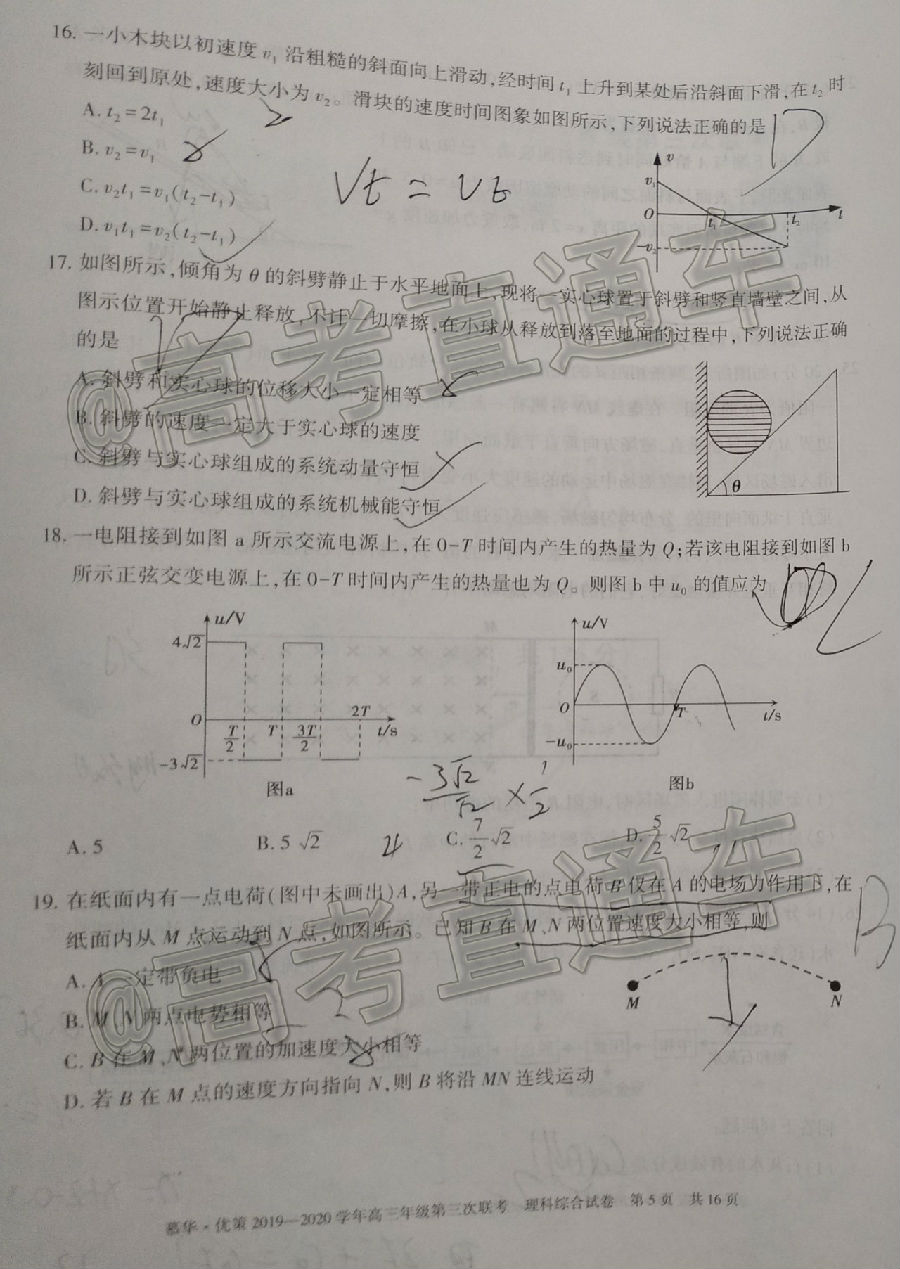 16. 一小木块以初速度 v₁ 沿粗糙的斜面向上滑动,经时间 t₁ 上升到某处后沿斜面下滑,在 t₂ 时
刻回到原处,速度大小为 v₂。滑块的速度时间图象如图所示,下列说法正确的是 D
A. t₂=2t₁
B. v₂=v₁
C. v₂t₁=v₁(t₂-t₁)
D. v₁t₁=v₂(t₂-t₁)
Vt = Vt
v
v₁
O
t₁
t₂
t
-v₂
17. 如图所示,倾角为 θ 的斜劈静止于水平地面上,现将一实心球置于斜劈和竖直墙壁之间,从
图示位置开始静止释放,不计一切摩擦,在小球从释放到落至地面的过程中,下列说法正确
的是
A. 斜劈和实心球的位移大小一定相等
B. 斜劈的速度一定大于实心球的速度
C. 斜劈与实心球组成的系统动量守恒
D. 斜劈与实心球组成的系统机械能守恒
θ
@高考直通车
18. 一电阻接到如图 a 所示交流电源上,在 0-T 时间内产生的热量为 Q;若该电阻接到如图 b
所示正弦交变电源上,在 0-T 时间内产生的热量也为 Q。则图 b 中 u₀ 的值应为
u/V
4√2
O
T/2
T
3T/2
2T
t/s
-3√2
图a
u/V
u₀
O
T
t/s
-u₀
图b
-3√2/√2 × 1/2
A. 5
B. 5√2
C. 7/2 √2
D. 5/2 √2
19. 在纸面内有一点电荷(图中未画出)A,另一带正电的点电荷 B 仅在 A 的电场力作用下,在
纸面内从 M 点运动到 N 点,如图所示。已知 B 在 M、N 两位置速度大小相等,则
B
A. A 一定带负电
B. M、N 两点电势相等
C. B 在 M、N 两位置的加速度大小相等
D. 若 B 在 M 点的速度方向指向 N,则 B 将沿 MN 连线运动
M
N
@高考直通车
慕华·优策 2019—2020 学年高三年级第三次联考 理科综合试卷 第 5 页 共 16 页